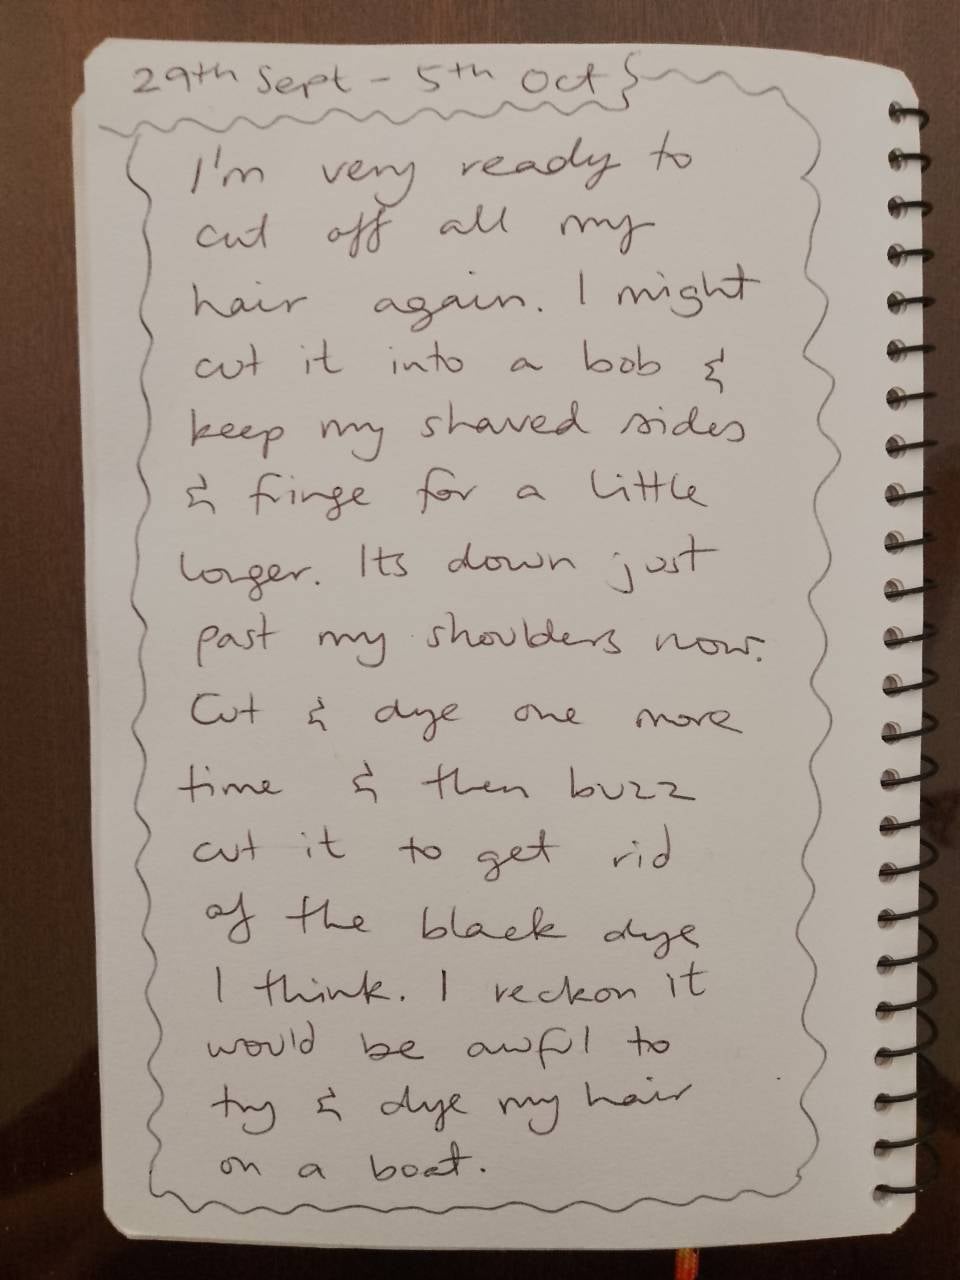 29th Sept - 5th Oct
I'm very ready to
cut off all my
hair again. I might
cut it into a bob &
keep my shaved sides
& fringe for a little
longer. Its down just
past my shoulders now.
Cut & dye one more
time & then buzz
cut it to get rid
of the black dye
I think. I reckon it
would be awful to
try & dye my hair
on a boat.